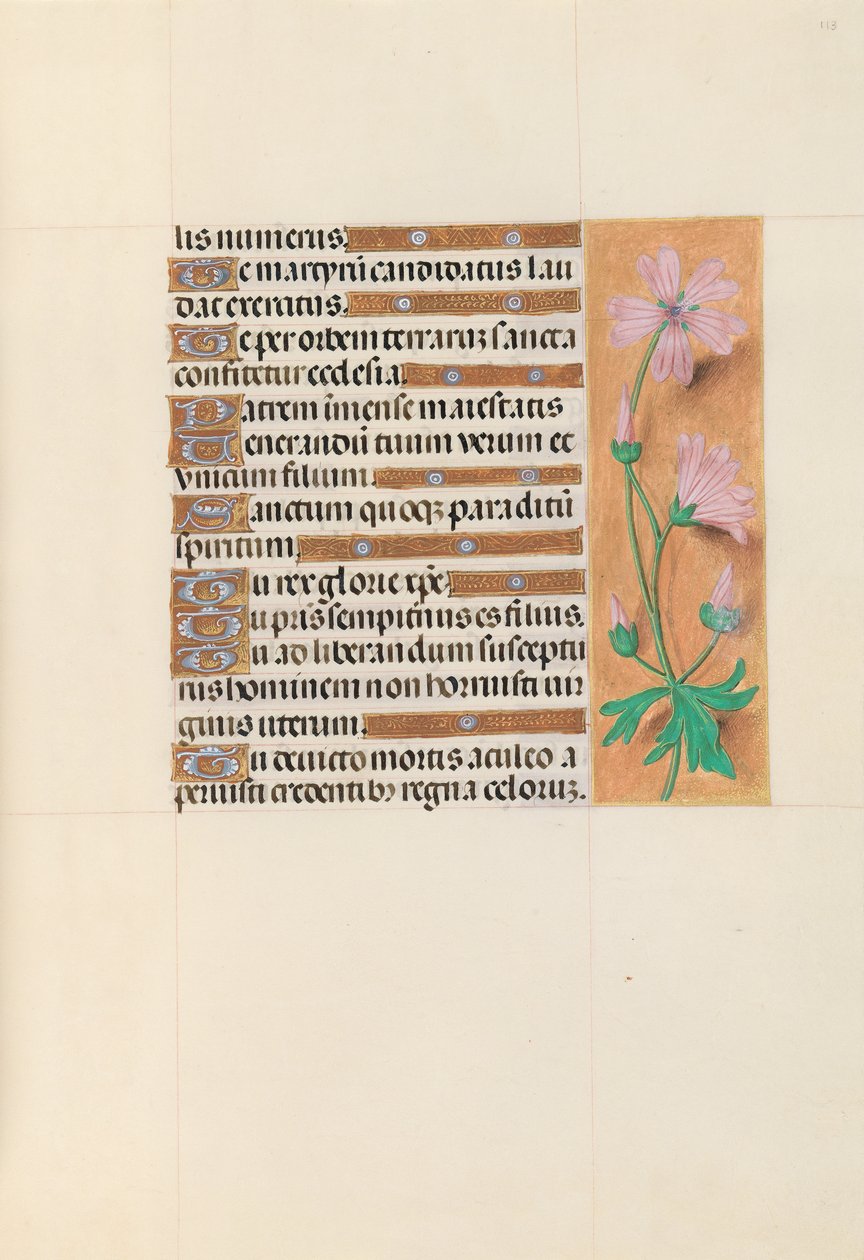 113
lis numerus.
Te martyrū candidatus lau
dat exercitus.
Te per orbem terraruꝫ sancta
confitetur ecclesia.
Patrem īmense maiestatis
Uenerandū tuum verum et
vnicum filium.
Sanctum quoqꝫ paraclitū
spiritum.
Tu rex glorie xp̄e.
Tu pr̄is sempiternus es filius.
Tu ad liberandum susceptu
rus hominem non horruisti uir
ginis uterum.
Tu deuicto mortis aculeo a
peruisti credentibꝫ regna celoruꝫ.